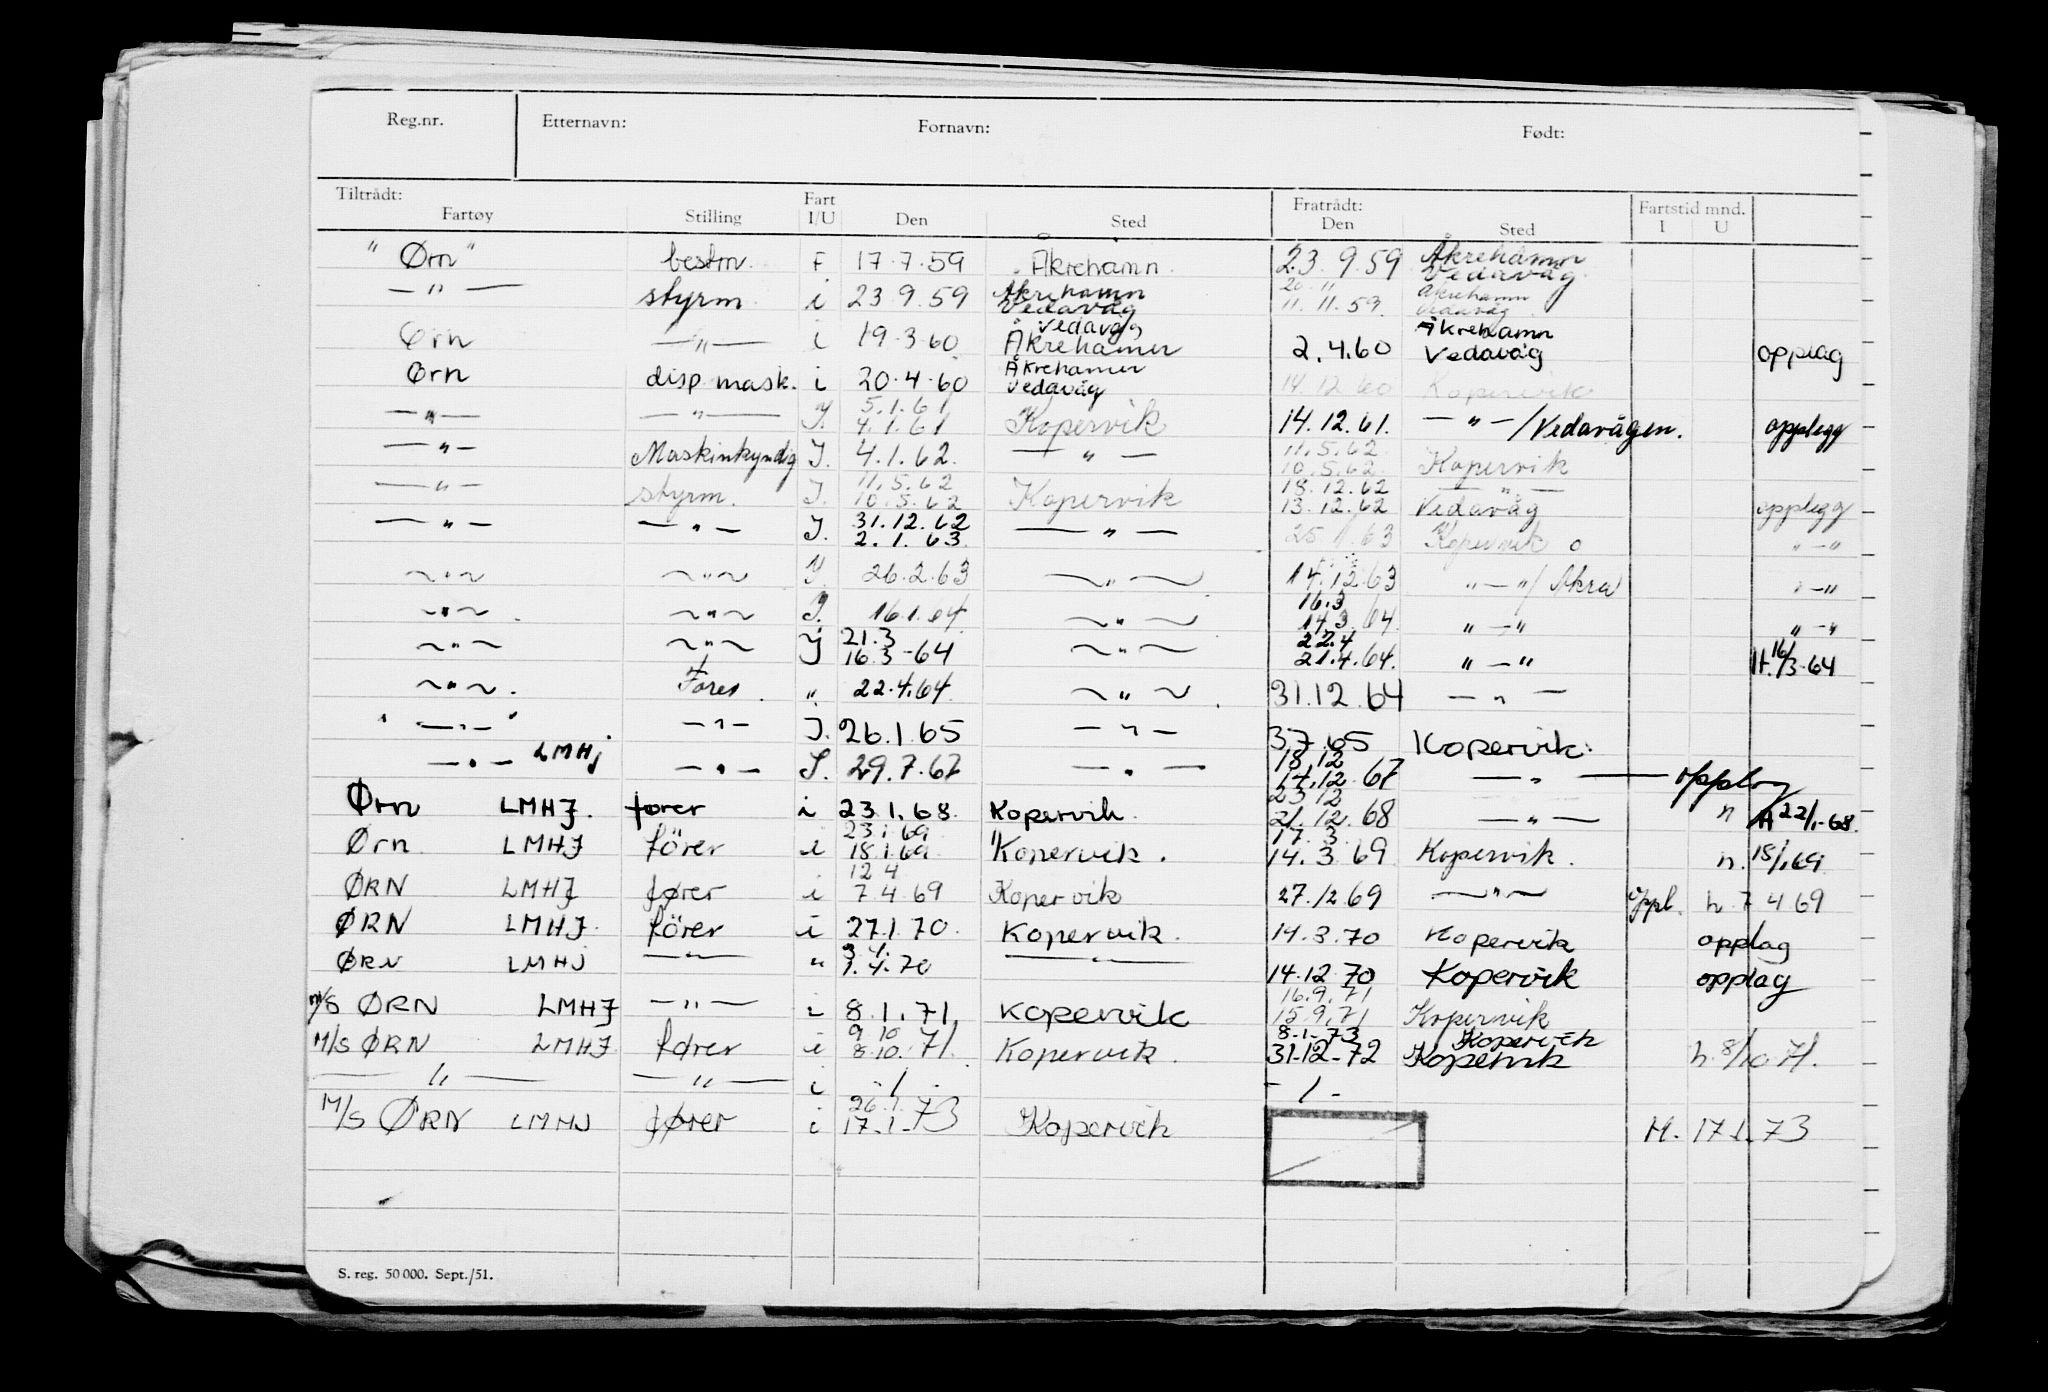 Reg.nr. Etternavn: Fornavn: Født:
Tiltrådt: Fart Fratrådt: Fartstid mnd.
Fartøy Stilling I/U Den Sted Den Sted I U
"Ørn" bestm. F 17.7.59 Åkrehamn 23.9.59 Åkrehamn Vedavåg
—"— styrm i 23.9.59 Åkrehamn Vedavåg 20.11 11.11.59 Åkrehamn Vedavåg
Ørn —"— i 19.3.60 Vedavåg Åkrehamn 2.4.60 Åkrehamn Vedavåg opplag
Ørn disp mask. i 20.4.60 Åkrehamn Vedavåg 14.12.60 Kopervik
—"— —"— I. 5.1.61 4.1.61 Kopervik 14.12.61. —"—/Vedavågen. opplegg
—"— Maskinkyndig I. 4.1.62. —"— 11.5.62 10.5.62 Kopervik
—"— styrm. I. 11.5.62 10.5.62 Kopervik 18.12.62 13.12.62 —"— Vedavåg opplegg
—"— —"— I. 31.12.62 2.1.63. —"— 25.1.63 Kopervik "—"
~"~ ~"~ I. 26.2.63 ~"~ 14.12.63 "—"/Åkra "—"
~"~ ~"~ I. 16.1.64 ~"~ 16.3 14.3.64. "—" "—"
~"~ ~"~ I 21.3 16.3-64 ~"~ 22.4 21.4.64. "—" 16/3-64
~"~. Fører. " 22.4.64. ~"~ 31.12.64 —"—
"—"—" —"— I. 26.1.65 —"— 3.7.65 Kopervik.
—"— LMHJ —"— I. 29.7.67 —"— 18.12 14.12.67 —"— opplag
Ørn LMHJ. fører i 23.1.68. Kopervik. 23.12 21.12.68 —"— n 22/1-68.
Ørn LMHJ förer i 23.1.69 18.1.69 Kopervik. 17.3. 14.3.69 Kopervik. n. 18/1.69
ØRN LMHJ fører i 12.4 7.4.69 Kopervik 27.12.69 —"— Oppl. h 7.4.69
ØRN LMHJ. förer i 27.1.70. Kopervik. 14.3.70 Kopervik opplag
ØRN LMHJ —"— " 3.4. 1.4.70 —"— 14.12.70 Kopervik opplag
M/S ØRN LMHJ —"— i 8.1.71 Kopervik 16.9.71 15.9.71 Kopervik
M/S ØRN LMHJ fører i 9.10 8.10.71. Kopervik. 8.1.-73 31-12-72 Kopervik Kopervik h. 8/10 71.
—"— —"— i -/- -/-
M/S ØRN LMHJ fører i 26.1. 17.1.-73 Kopervik M. 17.1.73
S. reg. 50 000. Sept./51.